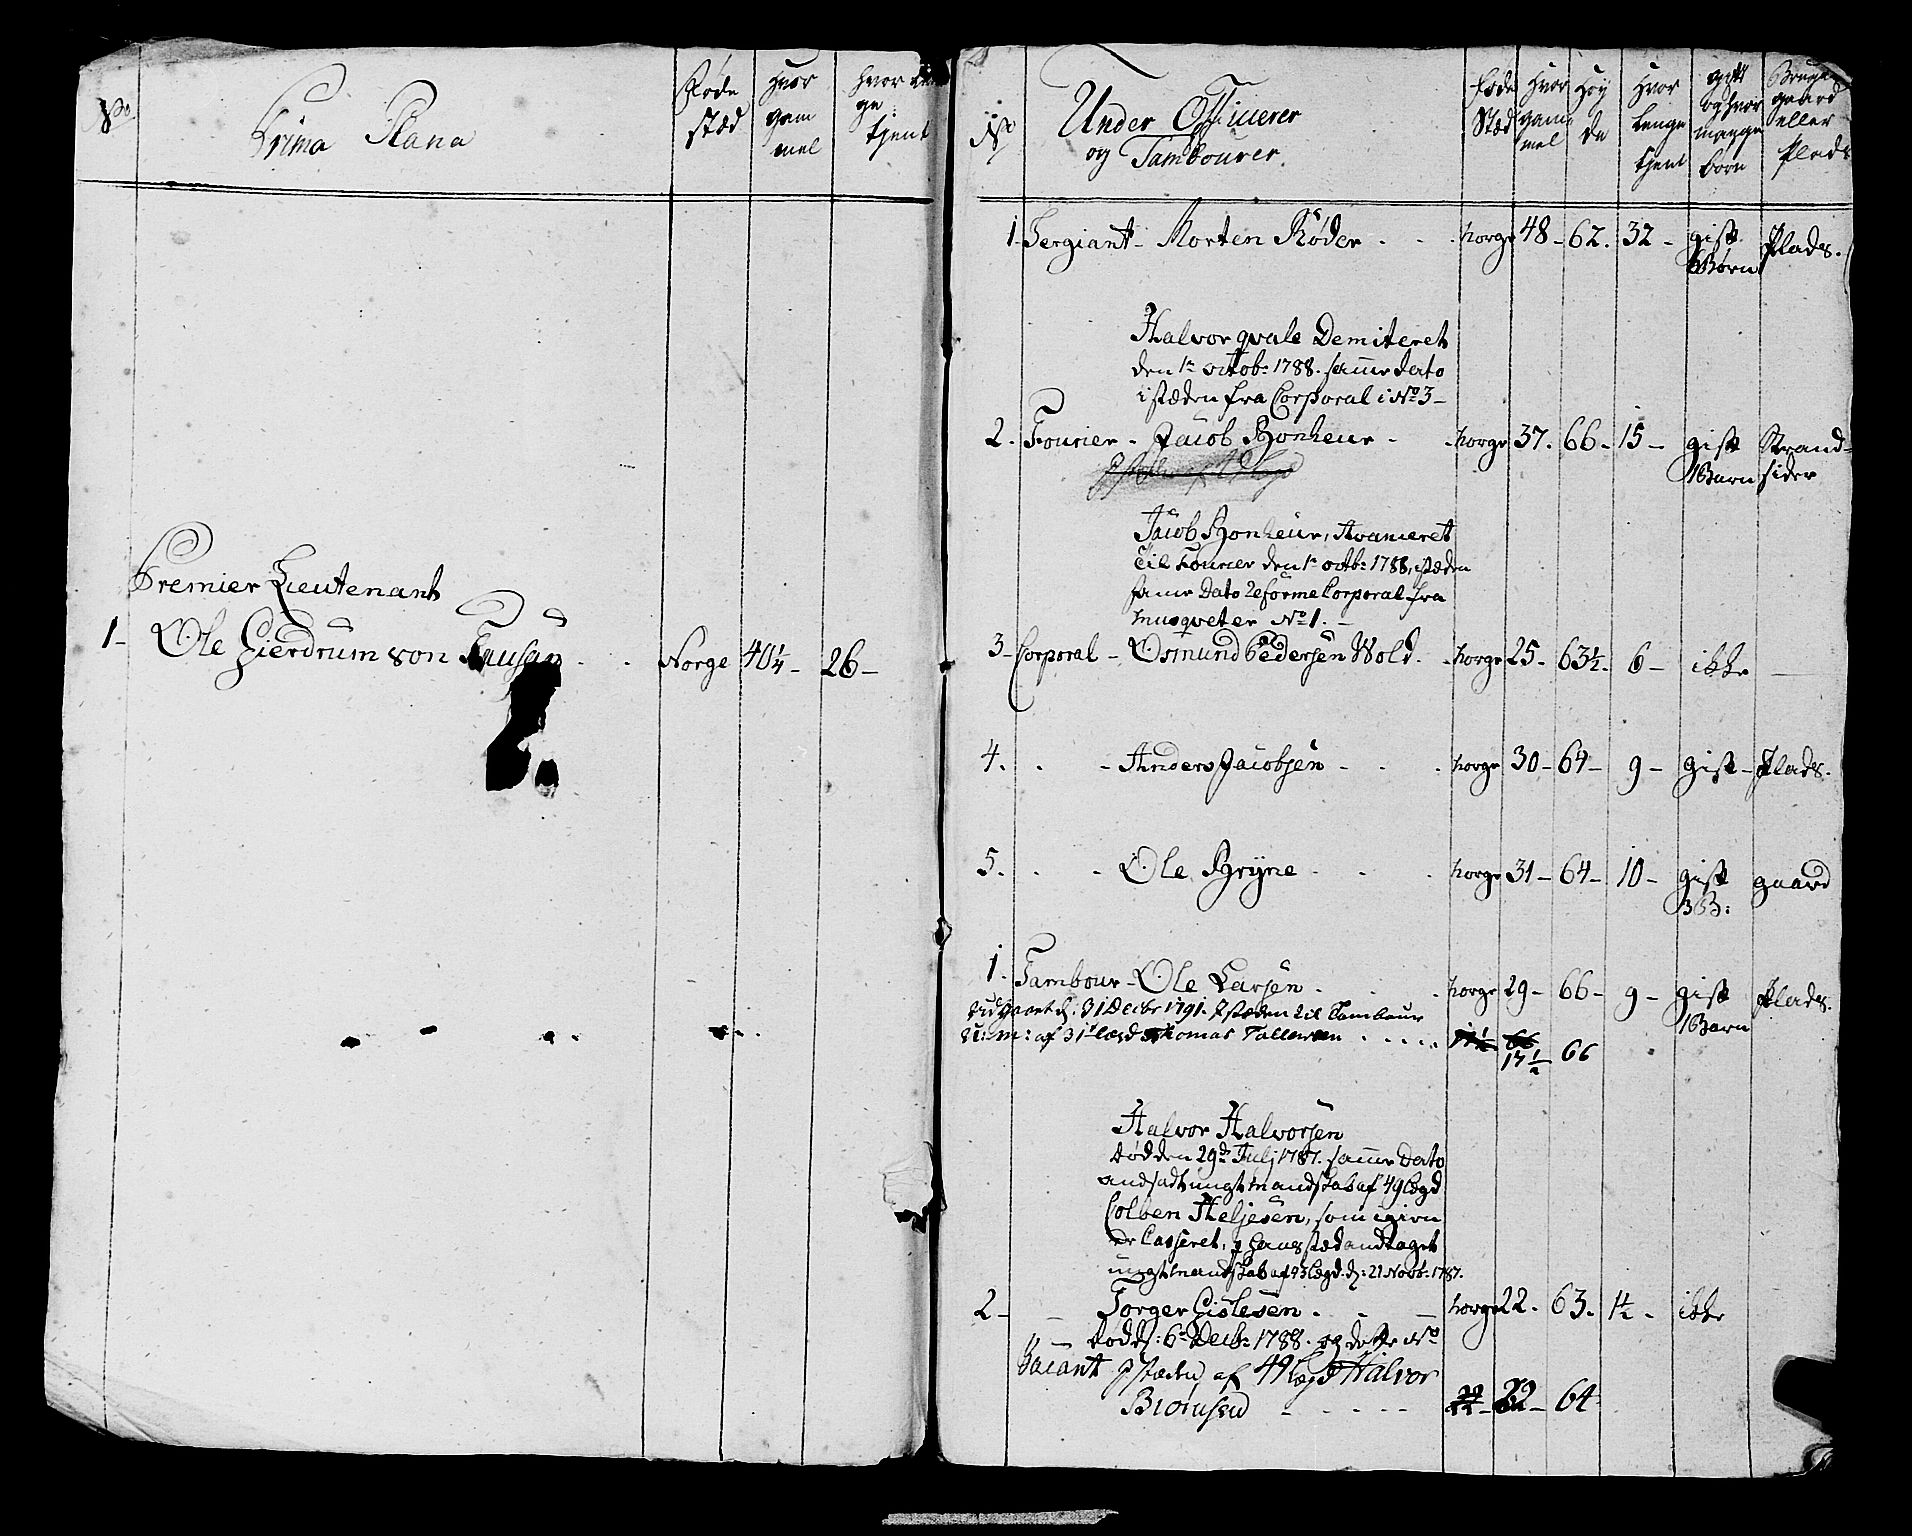 No
Prima Plana
Føde
stæd
Hvor
gam
mel
Hvor len
ge
tjent
Premier Lieutenant
1- Ole Gierdrum von - - Norge 40¼- 26-
No
Under Officerer
og Tambourer.
Føde
Stæd
Hvor
gam
mel
Høy
de
Hvor
lenge
tjent
gift
og hvor
mange
børn
Bruger
gaard
eller
Plads
1. Sergiant- Morten Røder - - - Norge 48- 62. 32- gift Plads.
Børn
Halvor qvale Demiteret
den 1te octob: 1788. samme dato
i stæden fra Corporal i No 3-
2. Fourier- Jacob Bonheur - - Norge 37. 66- 15- gift Strand-
1 Barn sider
Jacob Bonheur, Avanceret
til Fourier den 1te octb: 1788, i stæden
samme Dato Reforme Corporal fra
Musqveter No 1. -
3 Corporal- Osmund Pedersen Wold. - Norge 25- 63½. 6- ikke -
4. - - Anders Jacobsen - - - Norge 30- 64- 9- gift- Plads.
5. - - Ole Bryne - - - Norge 31- 64- 10- gift gaard
3 B:
1. Tambour- Ole Larsen - - - Norge 29- 66- 9- gift Plads.
1 Barn
Udgaaet d: 31 Decbr 1791. I stæden til Tambour
U: M: af 31 Lægd Thomas Tallevsen . . . . . 17½ 66
17½ 66
Halvor Halvorsen
død den 29de Julj 1787. samme Dato
andsadt ungt Mandskab af 49 Lægd
Colben Heljesen, som igien
er Casseret, i hans stæd andtaget
ungt Mandskab af 93 Lægd. d: 21 Novb: 1787.
2- - Torger Gislesen. - - Norge 22. 63. 1½- ikke
død d: 6te Decb: 1788. og dette No
Vacant I stæden af 49 Lægd Halvor
Biørnsen - - - - - 22- 22- 64